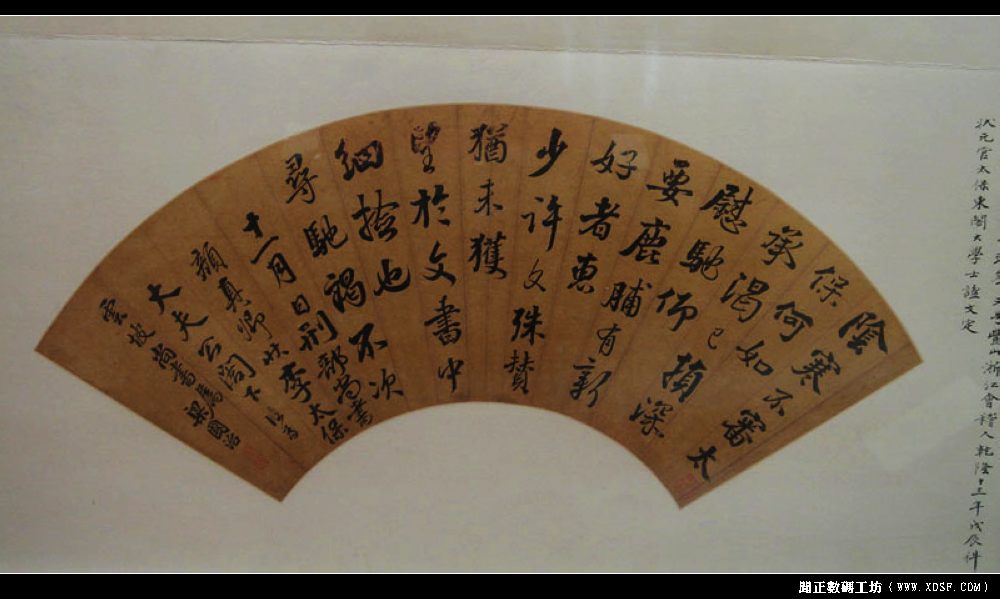 陰寒不審太
保何如
承渴已損深
慰馳仰
要鹿脯有新
好者惠
少許文殊賛
猶未獲
望於文書中
細捨也
尋馳謁不次
十一月日刑部尚書
顏真卿狀李太保
大夫公閣下臨為
雲坡尚書屬梁國治
浙江會稽人乾隆十三年戊辰科
狀元官太保東閣大學士謚文定
聞正數碼工坊（WWW.XDSF.COM）